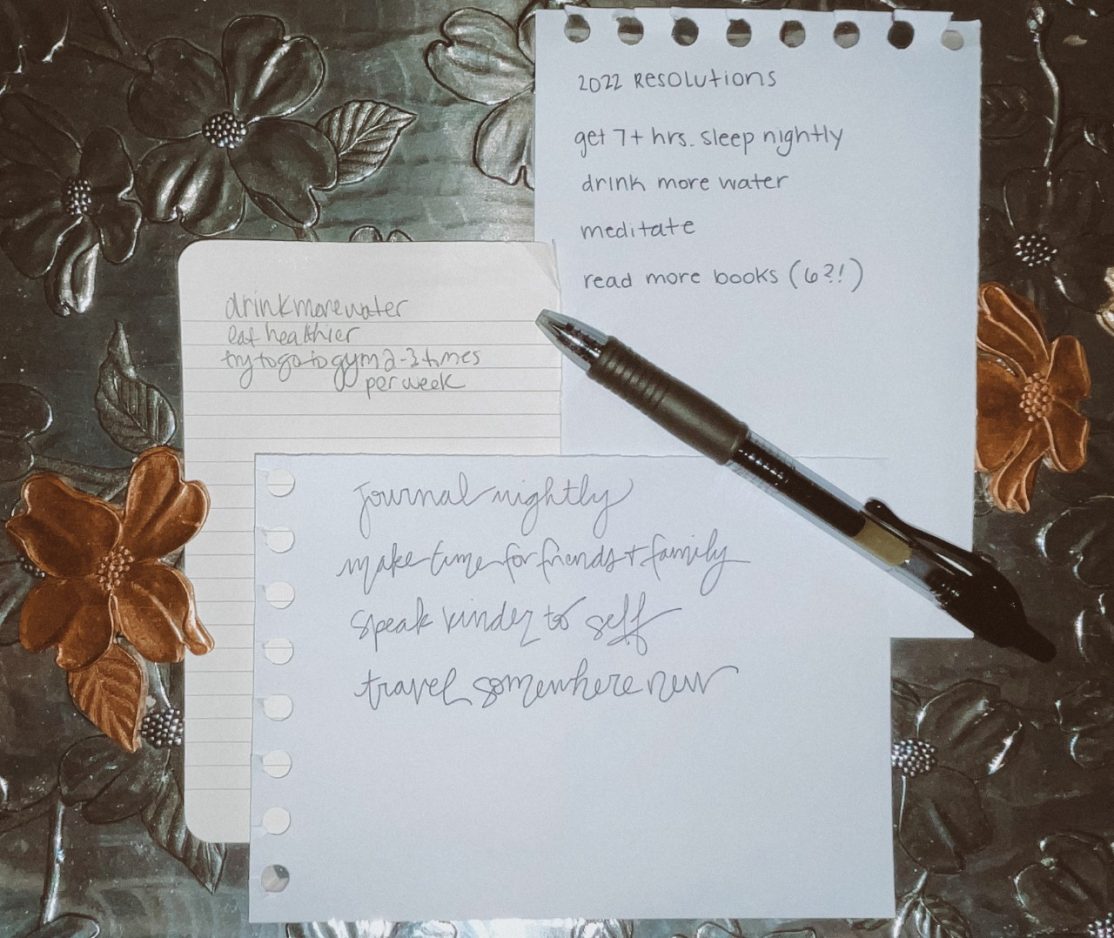 2022 RESOLUTIONS
get 7+ hrs. sleep nightly
drink more water
meditate
read more books (6?!)
drink more water
eat healthier
try to go to gym 2-3 times
per week
Journal nightly
make time for friends + family
speak kinder to self
travel somewhere new